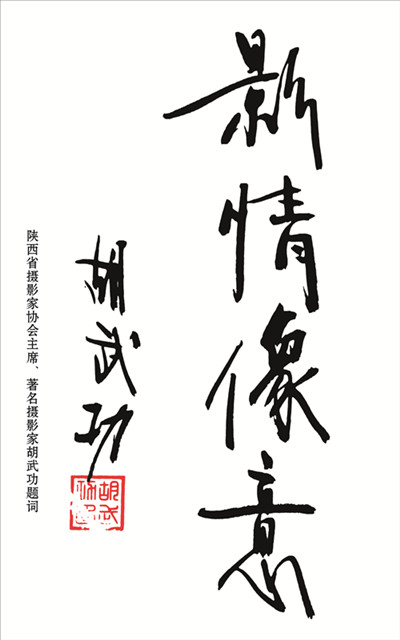 影情像意
胡武功
胡武功印
陕西省摄影家协会主席、著名摄影家胡武功题词